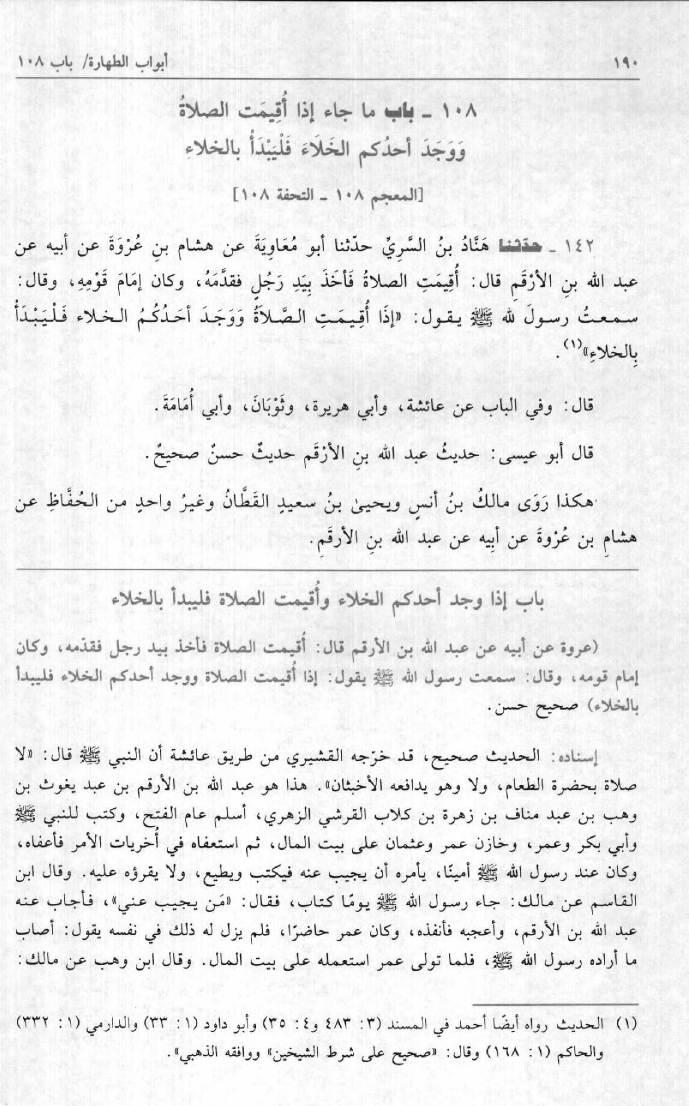 ١٩٠ أبواب الطهارة/ باب ١٠٨
١٠٨ ـ باب ما جاء إذا أُقِيمَت الصلاةُ
وَوَجَدَ أحدُكم الخَلَاءَ فَلْيَبْدَأُ بالخلاءِ
[المعجم ١٠٨ ـ التحفة ١٠٨]
١٤٢ ـ حدّثنا هَنَّادُ بنُ السَّرِيِّ حدّثنا أبو مُعَاوِيَةَ عن هشام بنِ عُرْوَةَ عن أبيه عن
عبد الله بنِ الأرْقَمِ قال: أُقِيمَتِ الصلاةُ فَأخَذَ بِيَدِ رَجُلٍ فقدَّمَهُ، وكان إمَامَ قَوْمِهِ، وقال:
سمعتُ رسولَ لله ﷺ يقول: «إذَا أُقِيمَتِ الصَّلَاةُ وَوَجَدَ أحَدُكُمُ الخلاء فَلْيَبْدَأْ
بِالخلاءِ»(١).
قال: وفي الباب عن عائشة، وأبي هريرة، وثَوْبَانَ، وأبي أُمَامَةَ.
قال أبو عيسى: حديثُ عبد الله بنِ الأرْقَم حديثٌ حسنٌ صحيحٌ.
هكذا رَوَى مالكُ بنُ أنسٍ ويحيىٰ بنُ سعيدٍ القَطَّانُ وغيرُ واحدٍ من الحُفَّاظِ عن
هشامِ بن عُرْوةَ عن أبِيه عن عبد الله بنِ الأرقَمِ.
باب إذا وجد أحدكم الخلاء وأُقيمت الصلاة فليبدأ بالخلاء
(عروة عن أبيه عن عبد الله بن الأرقم قال: أُقيمت الصلاة فأخذ بيد رجل فقدّمه، وكان
إمام قومه، وقال: سمعت رسول الله ﷺ يقول: إذا أُقيمت الصلاة ووجد أحدكم الخلاء فليبدأ
بالخلاء) صحيح حسن.
إسناده: الحديث صحيح، قد خرّجه القشيري من طريق عائشة أن النبي ﷺ قال: «لا
صلاة بحضرة الطعام، ولا وهو يدافعه الأخبثان». هذا هو عبد الله بن الأرقم بن عبد يغوث بن
وهب بن عبد مناف بن زهرة بن كلاب القرشي الزهري، أسلم عام الفتح، وكتب للنبي ﷺ
وأبي بكر وعمر، وخازن عمر وعثمان على بيت المال، ثم استعفاه في أُخريات الأمر فأعفاه،
وكان عند رسول الله ﷺ أمينًا، يأمره أن يجيب عنه فيكتب ويطيع، ولا يقرؤه عليه. وقال ابن
القاسم عن مالك: جاء رسول الله ﷺ يومًا كتاب، فقال: «مَن يجيب عني»، فأجاب عنه
عبد الله بن الأرقم، وأعجبه فأنفذه، وكان عمر حاضرًا، فلم يزل له ذلك في نفسه يقول: أصاب
ما أراده رسول الله ﷺ، فلما تولى عمر استعمله على بيت المال. وقال ابن وهب عن مالك:
(١) الحديث رواه أيضًا أحمد في المسند (٣: ٤٨٣ و٤: ٣٥) وأبو داود (١: ٣٣) والدارمي (١: ٣٣٢)
والحاكم (١: ١٦٨) وقال: «صحيح على شرط الشيخين» ووافقه الذهبي».